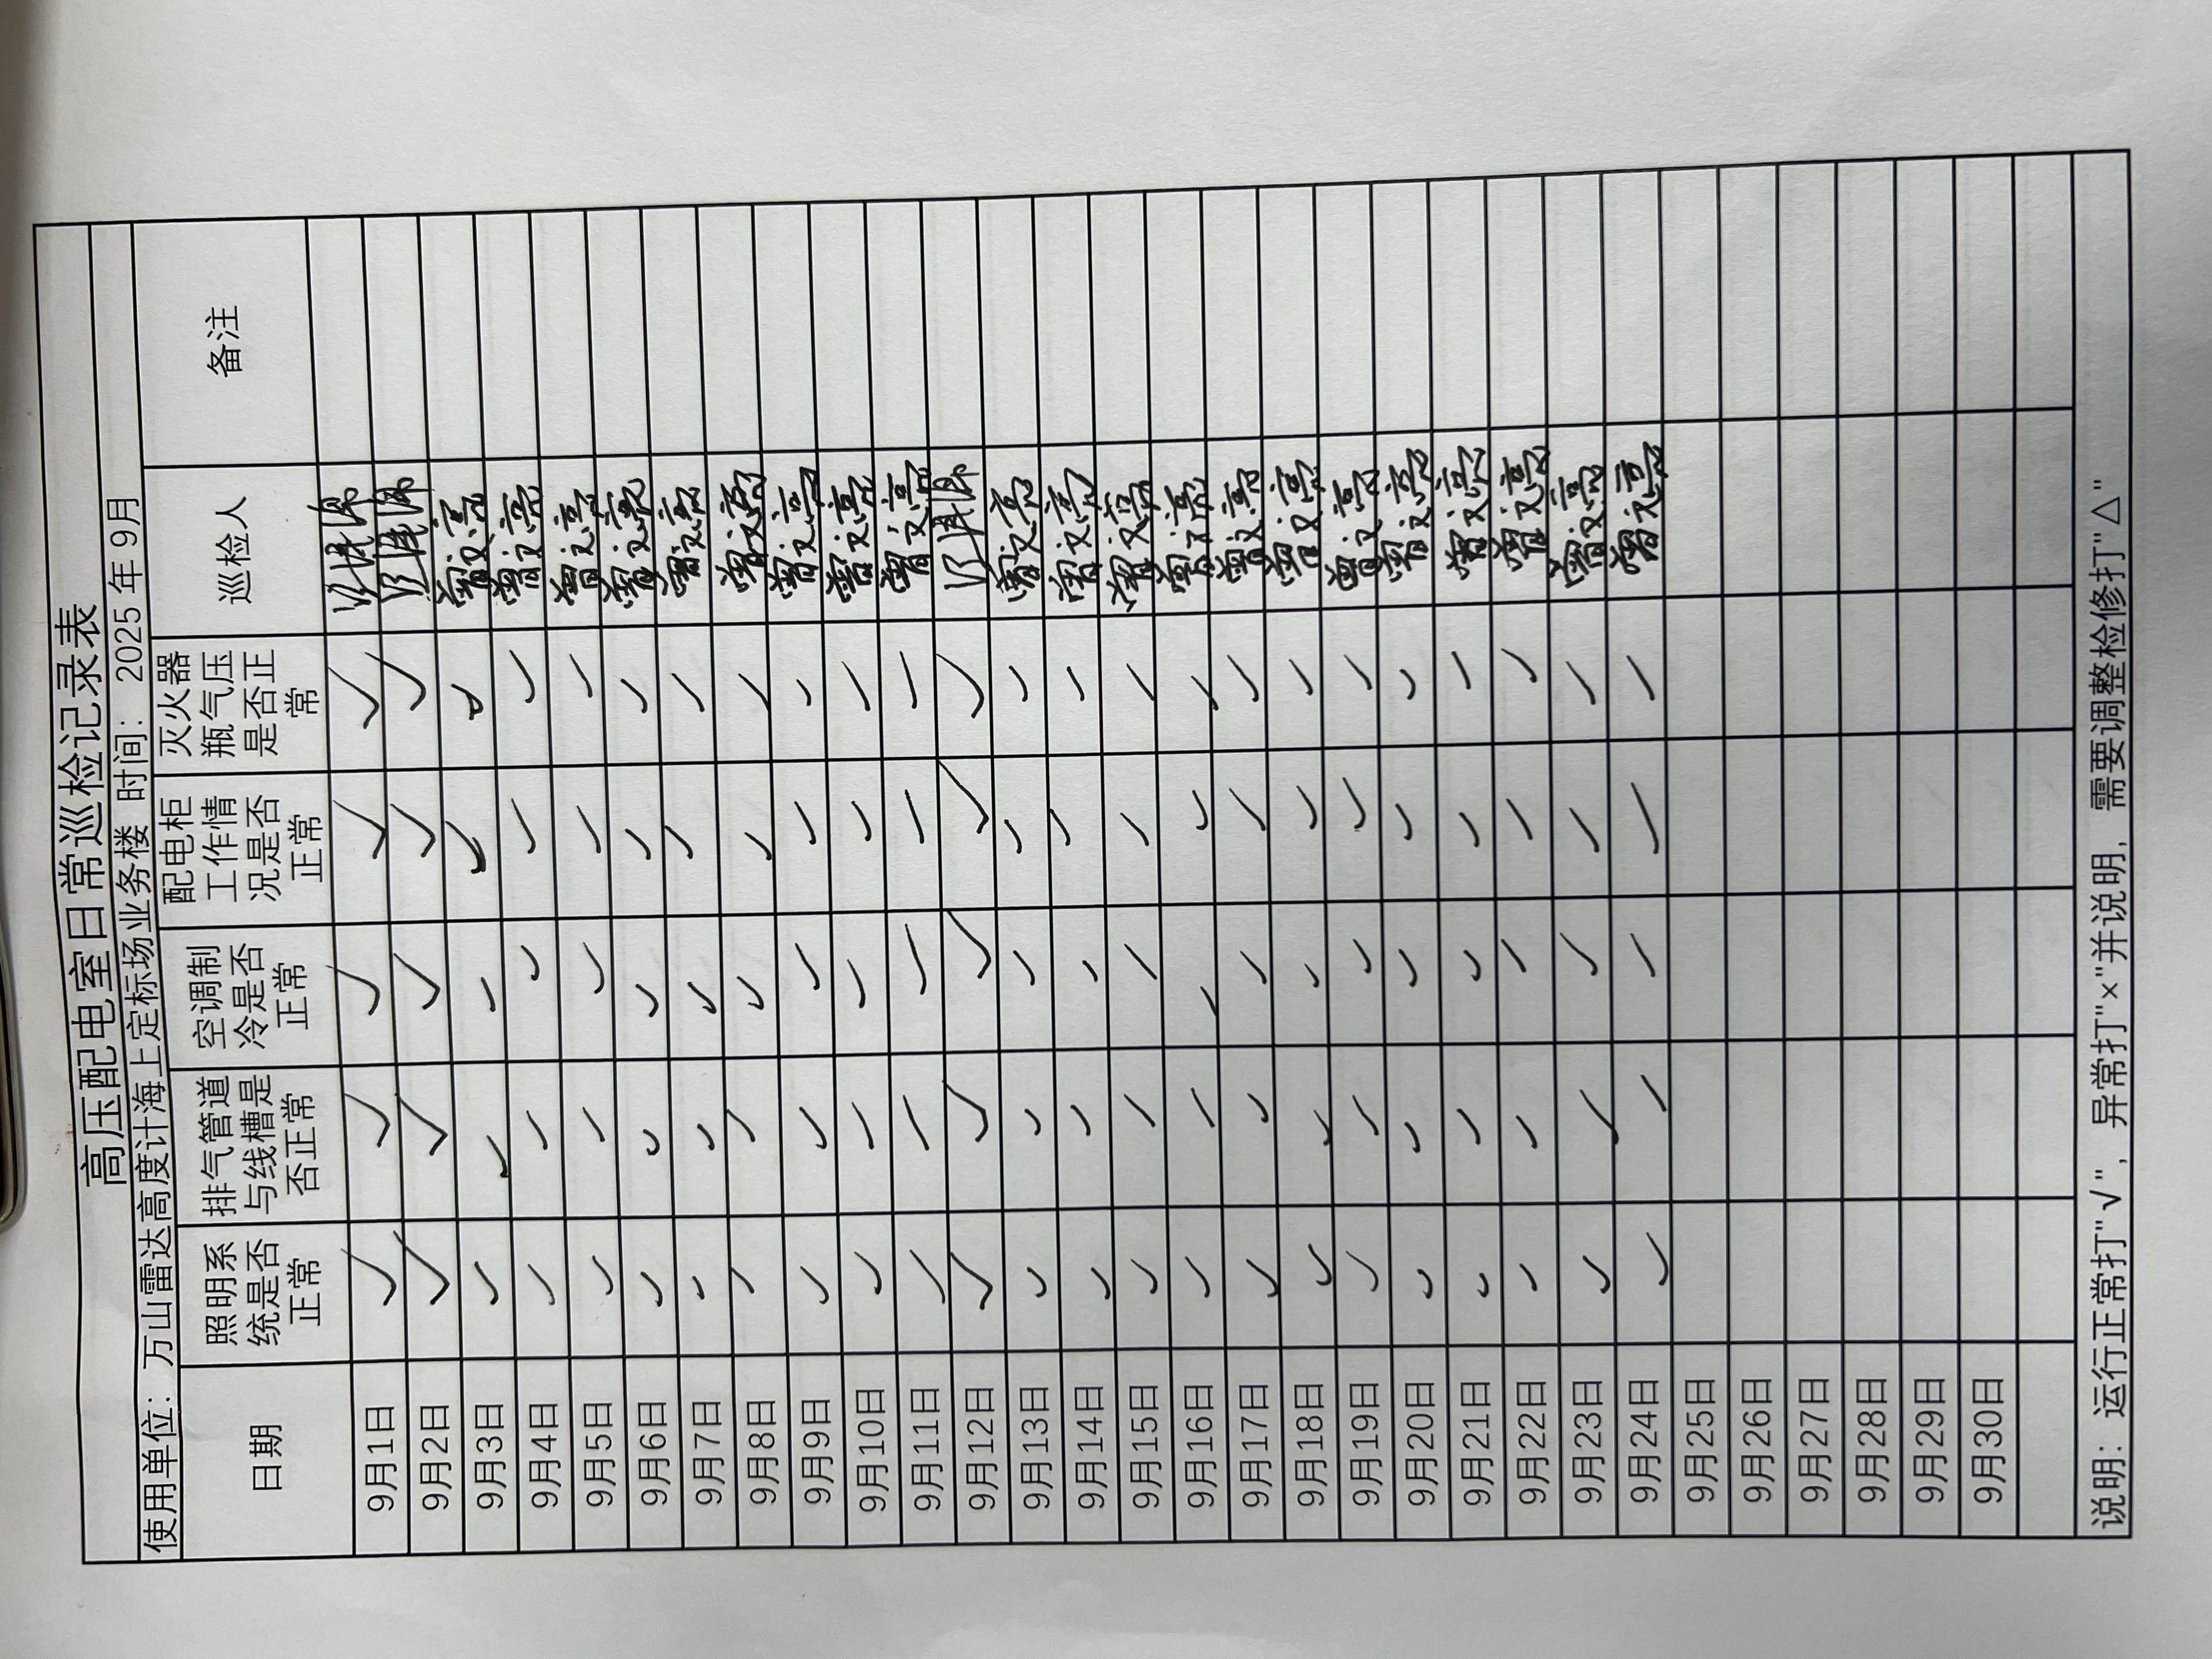 高压配电室日常巡检记录表
使用单位：万山雷达高度计海上定标场业务楼 时间：2025年9月
日期 照明系统是否正常 排气管道与线槽是否正常 空调制冷是否正常 配电柜工作情况是否正常 灭火器瓶气压是否正常 巡检人 备注
9月1日 ✓ ✓ ✓ ✓ ✓
9月2日 ✓ ✓ ✓ ✓ ✓
9月3日 ✓ ✓ ✓ ✓ ✓ 曾文亮
9月4日 ✓ ✓ ✓ ✓ ✓ 曾文亮
9月5日 ✓ ✓ ✓ ✓ ✓ 曾文亮
9月6日 ✓ ✓ ✓ ✓ ✓ 曾文亮
9月7日 ✓ ✓ ✓ ✓ ✓ 曾文亮
9月8日 ✓ ✓ ✓ ✓ ✓ 曾文亮
9月9日 ✓ ✓ ✓ ✓ ✓ 曾文亮
9月10日 ✓ ✓ ✓ ✓ ✓ 曾文亮
9月11日 ✓ ✓ ✓ ✓ ✓ 曾文亮
9月12日 ✓ ✓ ✓ ✓ ✓
9月13日 ✓ ✓ ✓ ✓ ✓ 曾文亮
9月14日 ✓ ✓ ✓ ✓ ✓ 曾文亮
9月15日 ✓ ✓ ✓ ✓ ✓ 曾文亮
9月16日 ✓ ✓ ✓ ✓ ✓ 曾文亮
9月17日 ✓ ✓ ✓ ✓ ✓ 曾文亮
9月18日 ✓ ✓ ✓ ✓ ✓ 曾文亮
9月19日 ✓ ✓ ✓ ✓ ✓ 曾文亮
9月20日 ✓ ✓ ✓ ✓ ✓ 曾文亮
9月21日 ✓ ✓ ✓ ✓ ✓ 曾文亮
9月22日 ✓ ✓ ✓ ✓ ✓ 曾文亮
9月23日 ✓ ✓ ✓ ✓ ✓ 曾文亮
9月24日 ✓ ✓ ✓ ✓ ✓ 曾文亮
9月25日
9月26日
9月27日
9月28日
9月29日
9月30日
说明：运行正常打"√"，异常打"×"并说明，需要调整检修打"△"